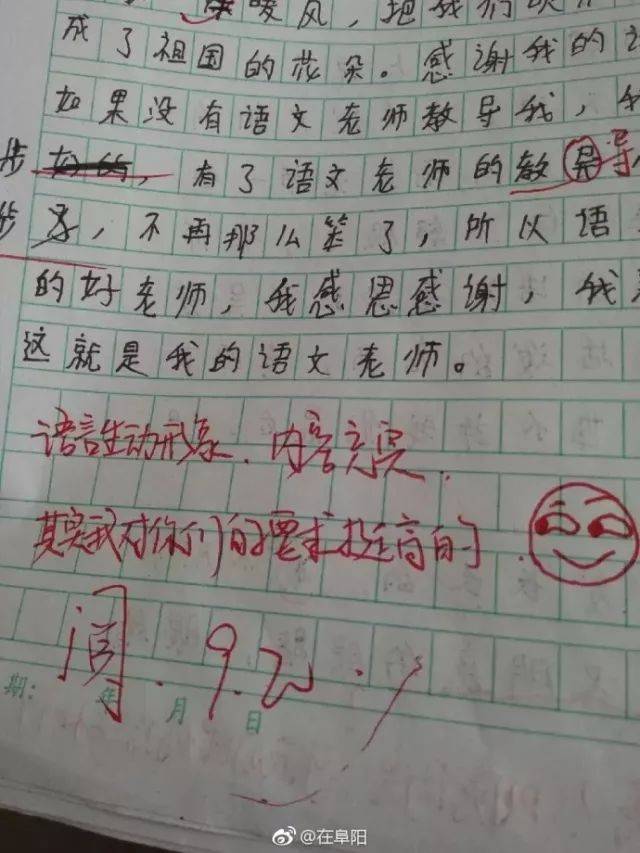 暖风，把我们吹
成了祖国的花朵。感谢我的
如果没有语文老师教导我，我
步 好的，有了语文老师的教导 导
步 子，不再那么笨了，所以语
的好老师，我感恩感谢，我
这就是我的语文老师。
语言生动形象．内容充实．
其实我对你们的要求挺高的
阅．9.20.
期： 年 月 日
@在阜阳